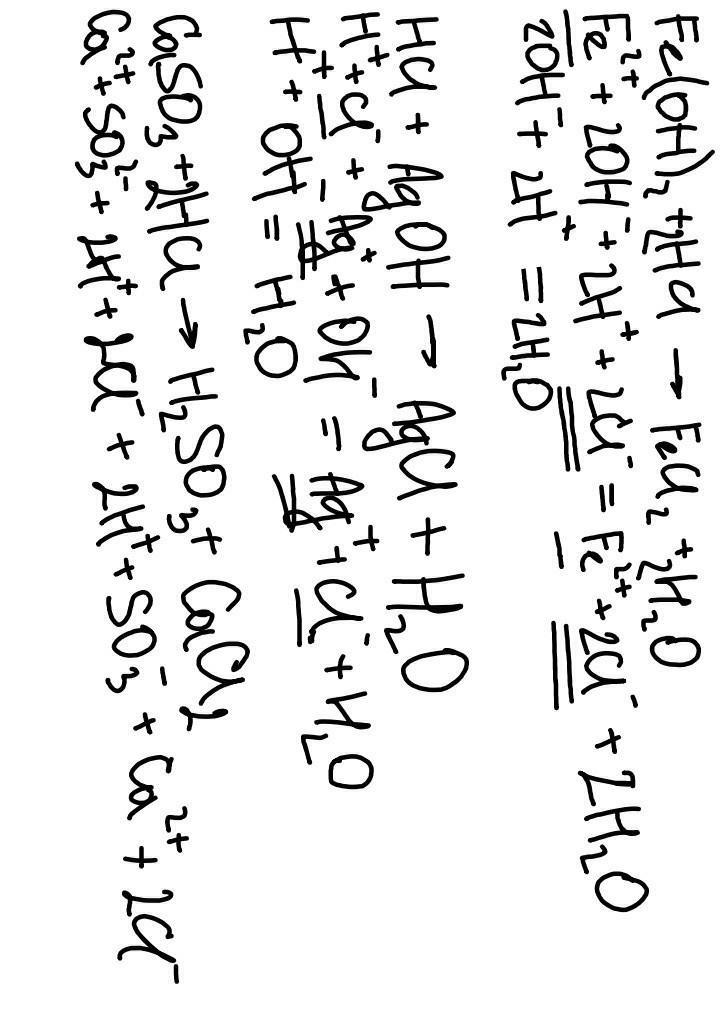 Fe(OH)₂ + 2HCl → FeCl₂ + 2H₂O
Fe²⁺ + 2OH⁻ + 2H⁺ + 2Cl⁻ = Fe²⁺ + 2Cl⁻ + 2H₂O
2OH⁻ + 2H⁺ = 2H₂O
HCl + AgOH → AgCl + H₂O
H⁺ + Cl⁻ + Ag⁺ + OH⁻ = Ag⁺ + Cl⁻ + H₂O
H⁺ + OH⁻ = H₂O
CaSO₃ + 2HCl → H₂SO₃ + CaCl₂
Ca²⁺ + SO₃²⁻ + 2H⁺ + 2Cl⁻ + 2H⁺ + SO₃⁻ + Ca²⁺ + 2Cl⁻